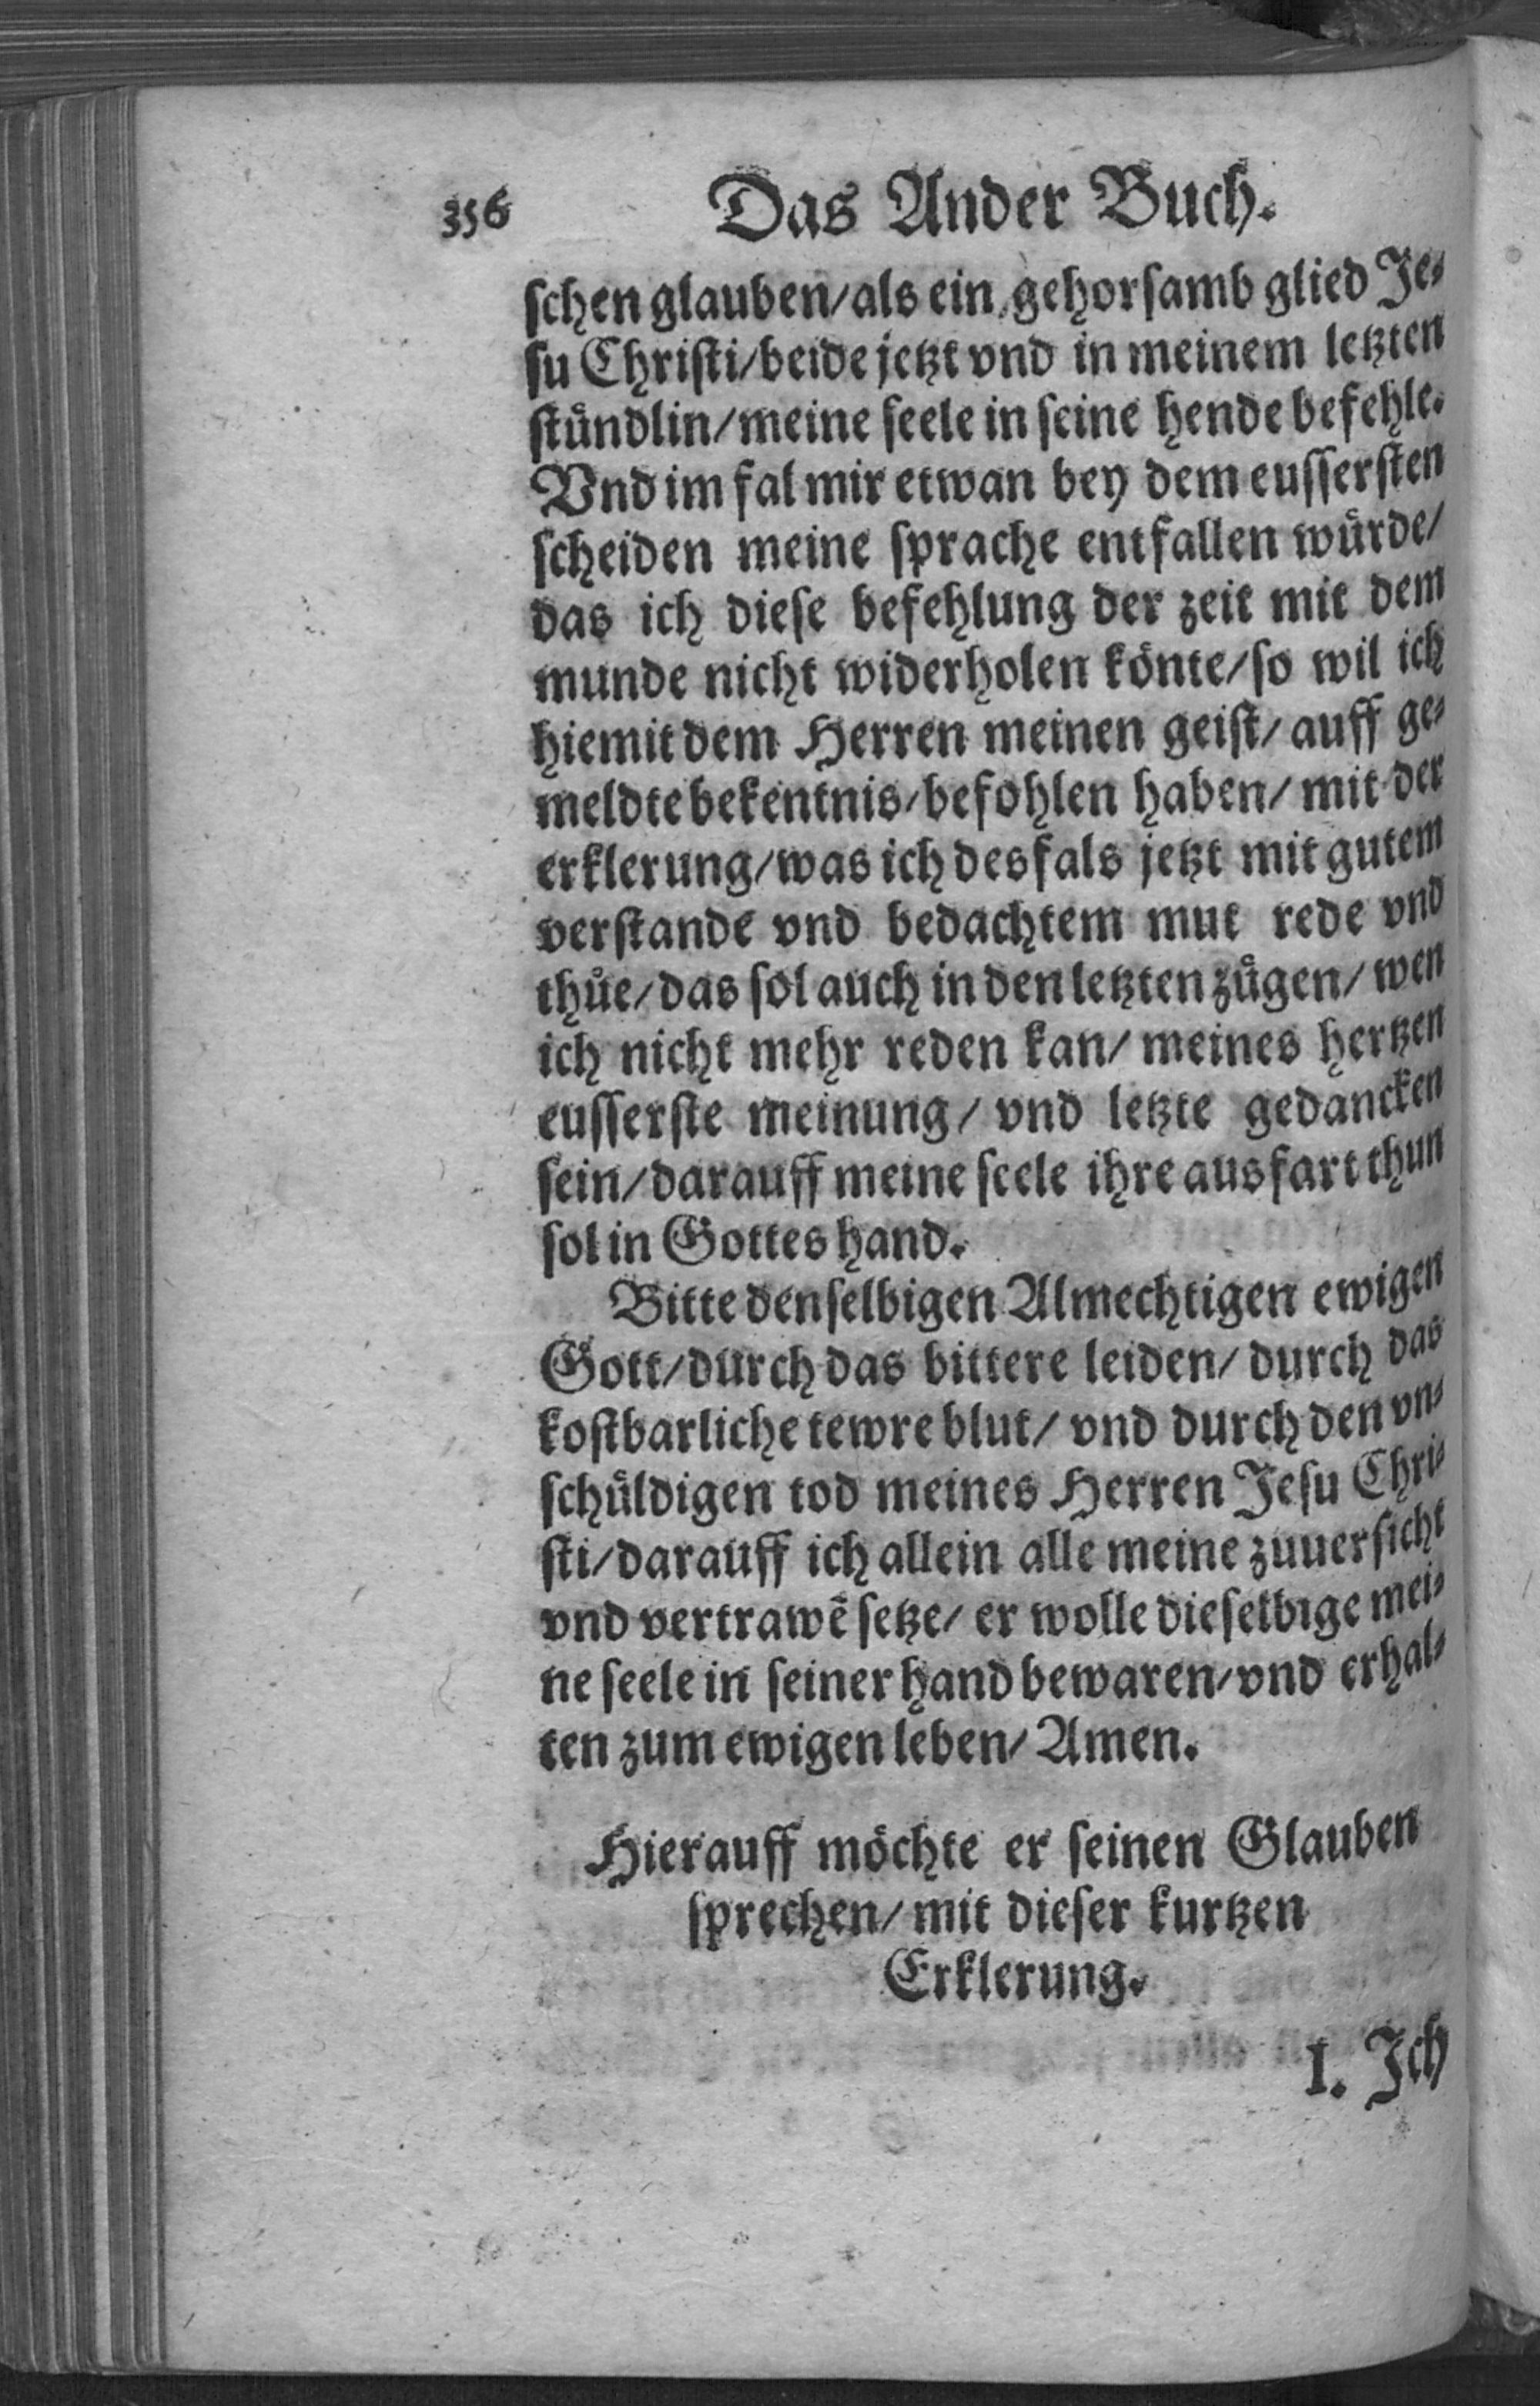 356 Das Ander Buch.
ſchen glauben/als ein gehorſamb glied Je⸗
ſu Chriſti/beide jetzt vnd in meinem letzten
ſtuͤndlin/meine ſeele in ſeine hende befehle.
Vnd im fal mir etwan bey dem euſſerſten
ſcheiden meine ſprache entfallen wuͤrde/
das ich dieſe befehlung der zeit mit dem
munde nicht widerholen koͤnte/ſo wil ich
hiemit dem Herren meinen geiſt/auff ge⸗
meldte bekentnis/befohlen haben/mit der
erklerung/was ich desfals jetzt mit gutem
verſtande vnd bedachtem mut rede vnd
thuͤe/das ſol auch in den letzten zuͤgen/wen
ich nicht mehr reden kan/meines hertzen
euſſerſte meinung/vnd letzte gedancken
ſein/darauff meine ſeele ihre ausfart thun
ſol in Gottes hand.
Bitte denſelbigen Almechtigen ewigen
Gott/durch das bittere leiden/durch das
koſtbarliche tewre blut/vnd durch den vn⸗
ſchuͤldigen tod meines Herren Jeſu Chri⸗
ſti/darauff ich allein alle meine zuuerſicht
vnd vertrawē ſetze/er wolle dieſelbige mei⸗
ne ſeele in ſeiner hand bewaren/vnd erhal⸗
ten zum ewigen leben/Amen.
Hierauff moͤchte er ſeinen Glauben
ſprechen/mit dieſer kurtzen
Erklerung.
I. Ich